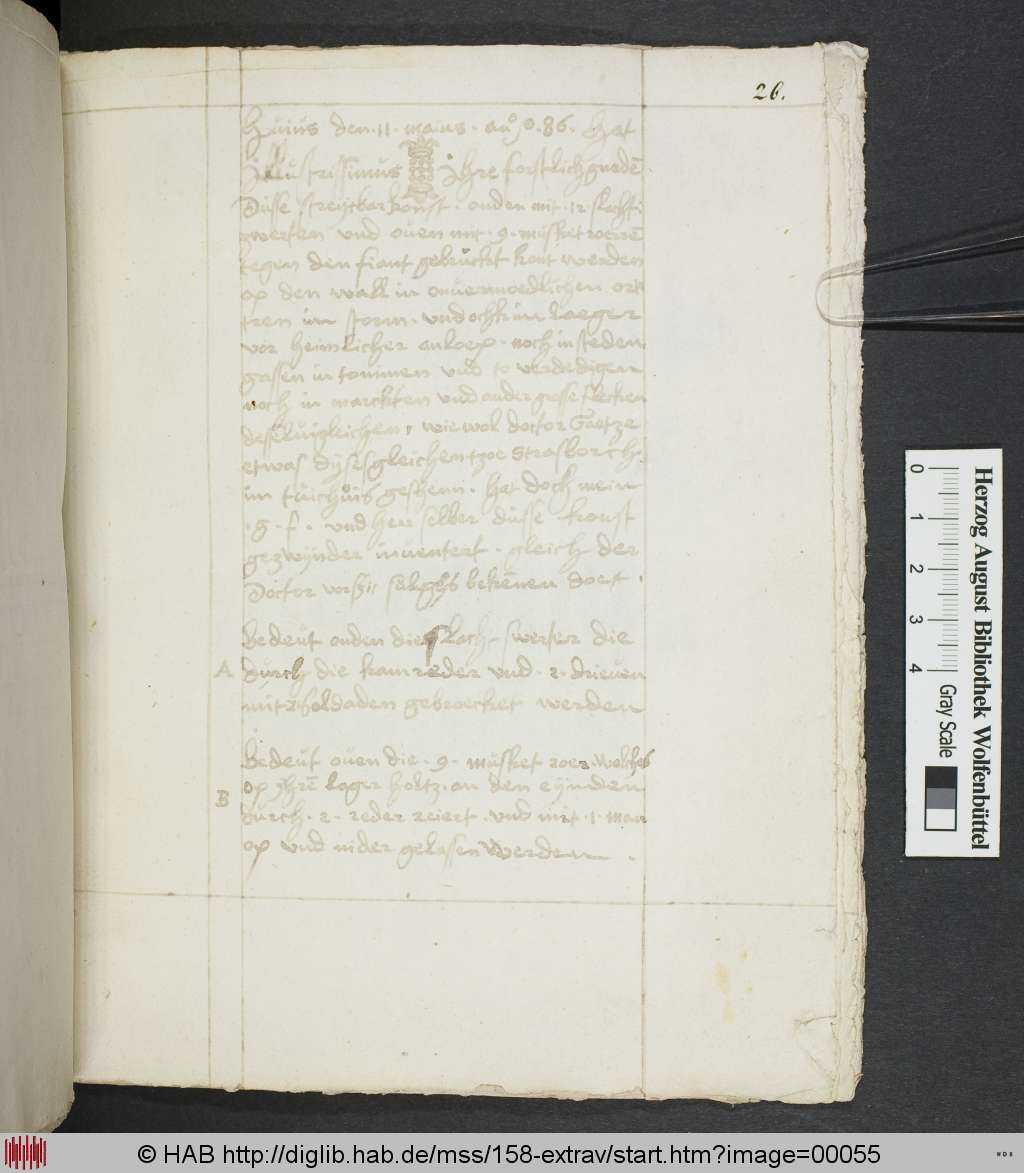 26.
Huius den . 11 . maius . año . 86 . hat
Illustrissimus Ihre forstlich gnaden
Düsse streytbar konst . onden mit . 12 slacht
swerten vnd ouen mit . 9 . müsket roeren
tegen den fiant gebruckt kan werden
op den wall in onuermoedlichen
im storm . vnd ock in laeger
vor heimlicher anloep . noch in steden
gassen in kommen vnd to verdedigen
noch in marckten vnd ander grose flecken
wie wol doctor Gaetze
etwas dijssgleichen tzoe Strasborch
im geshenn . hat doch mein
. g . f . vnd her selber düsse konst
geswijnder inuentert . gleich der
Doctor bekennen doet .
Bedeut onden die slach swerter die
A
durch die kamreder vnd . 2 . drieuen
mit 2 soldaden werden
Bedeut ouen die . 9 . müsket roer . welches
B
op yhre lager holtz . an den eynden
durch . 2 . reder reiert . vnd mit . 1 . man
op vnd nider gelasen werden .
Herzog August Bibliothek Wolfenbüttel
0 1 2 3 4
Gray Scale
© HAB http://diglib.hab.de/mss/158-extrav/start.htm?image=00055